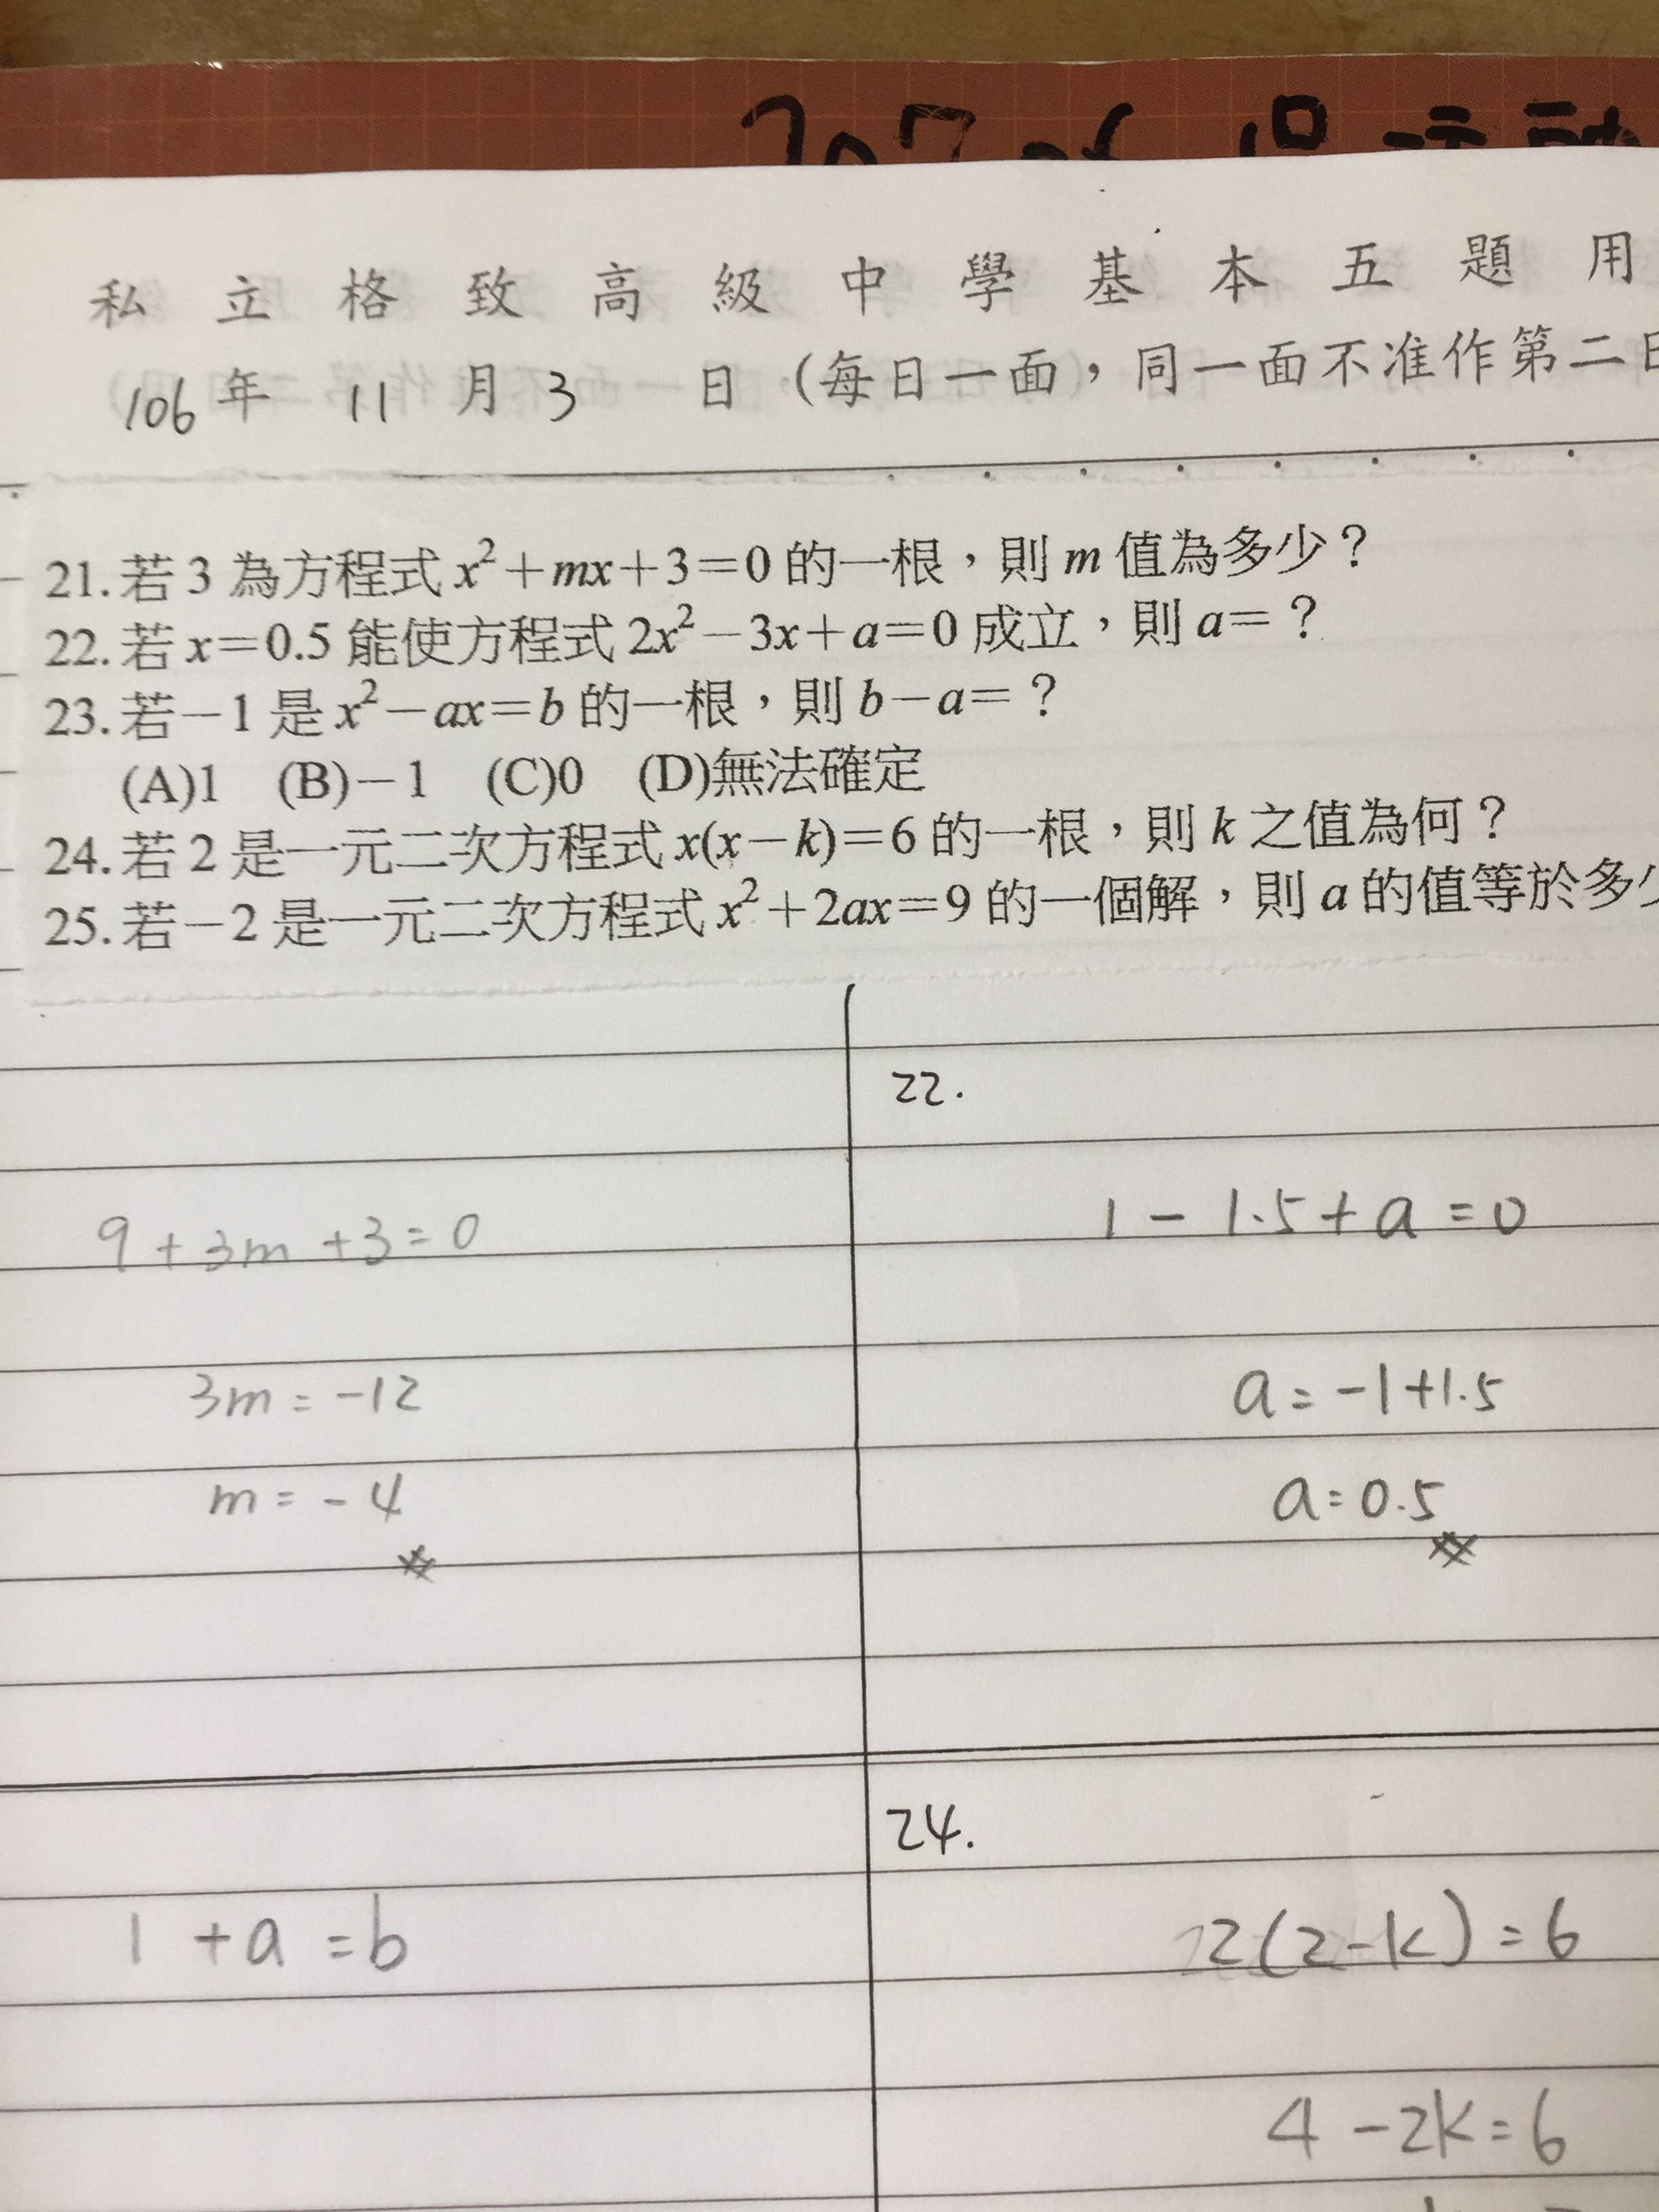 私立格致高級中學基本五題用
106年 11月 3 日 (每日一面，同一面不准作第二日
21. 若 3 為方程式 x²+mx+3=0 的一根，則 m 值為多少？
22. 若 x=0.5 能使方程式 2x²−3x+a=0 成立，則 a=？
23. 若−1 是 x²−ax=b 的一根，則 b−a=？
(A)1 (B)−1 (C)0 (D)無法確定
24. 若 2 是一元二次方程式 x(x−k)=6 的一根，則 k 之值為何？
25. 若−2 是一元二次方程式 x²+2ax=9 的一個解，則 a 的值等於多少
9+3m+3=0
3m=-12
m=-4
22.
1-1.5+a=0
a=-1+1.5
a=0.5
1+a=b
24.
2(2-k)=6
4-2k=6